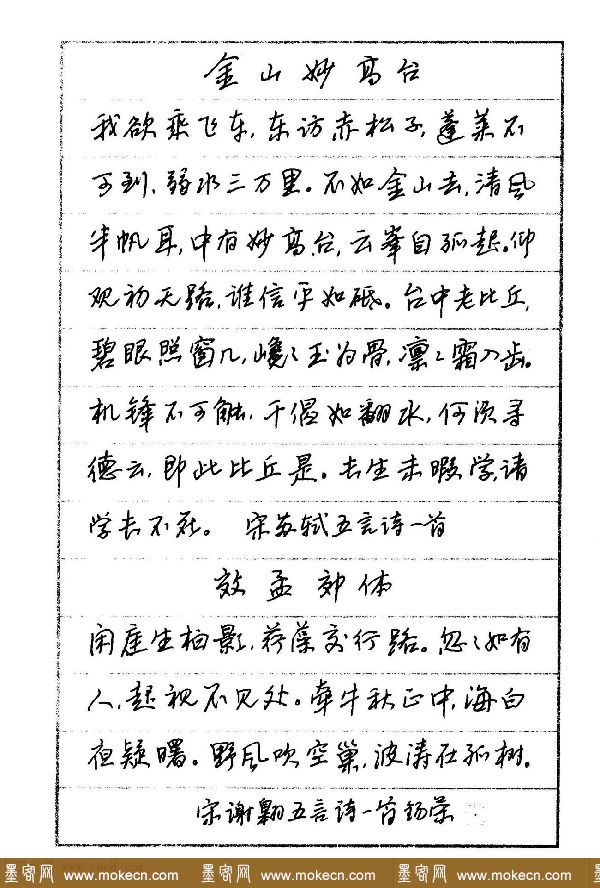 金山妙高台
我欲乘飞车,东访赤松子,蓬莱不
可到,弱水三万里。不如金山去,清风
半帆耳,中有妙高台,云峯自孤起。仰
观初无路,谁信平如砥。台中老比丘,
碧眼照窗几,巉々玉为骨,凛々霜入齿。
机锋不可触,千偈如翻水,何须寻
德云,即此比丘是。长生未暇学,请
学长不死。 宋苏轼五言诗一首
效孟郊体
闲庭生柏影,荇藻交行路。忽々如有
人,起视不见处。牵牛秋正中,海白
夜疑曙。野风吹空巢,波涛在孤树。
宋谢翱五言诗一首锡荣
墨客网 www.mokecn.com 墨客网 www.mokecn.com 墨客网 www.mokecn.com